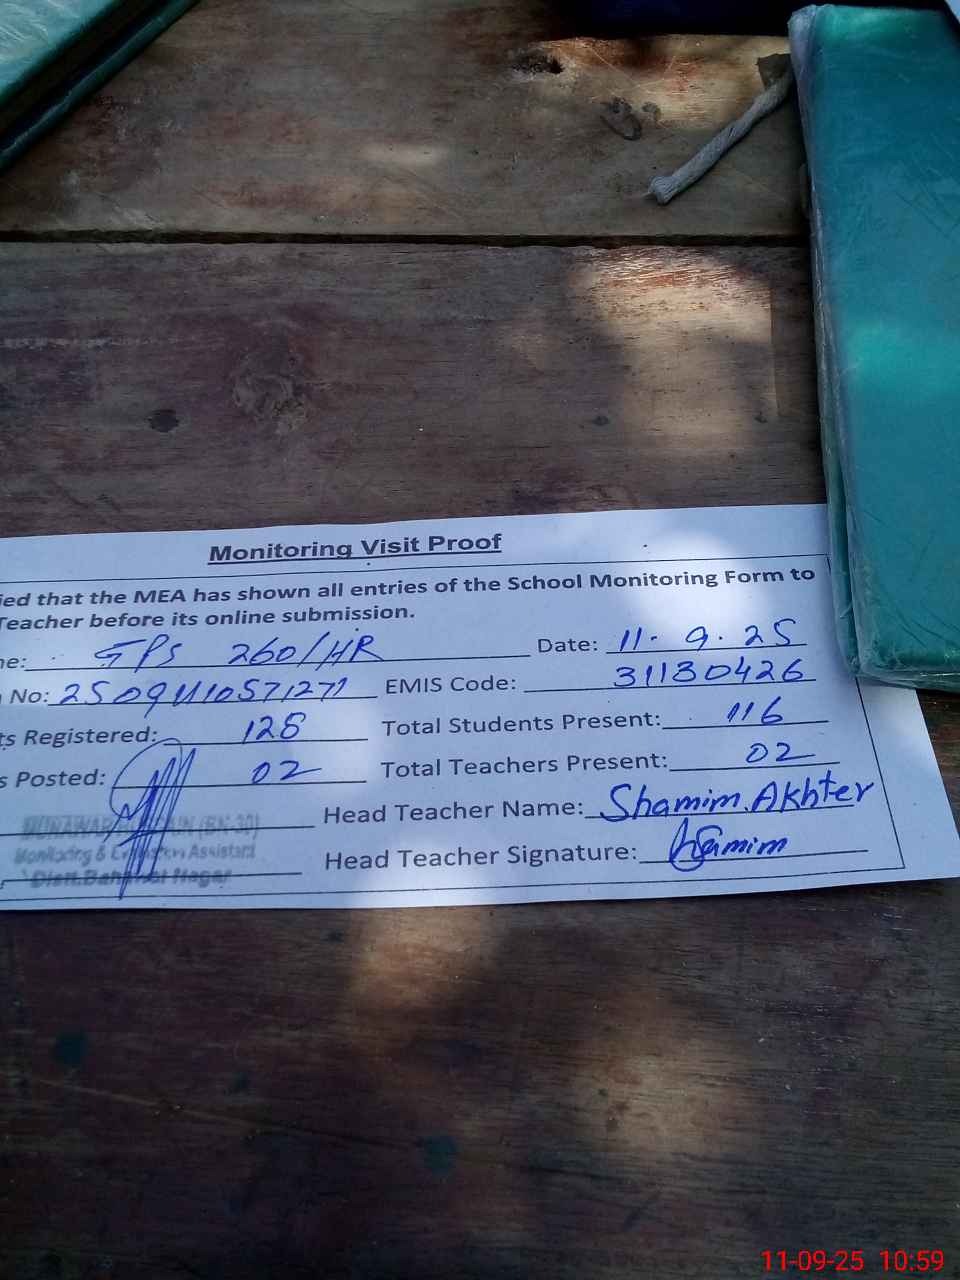 Monitoring Visit Proof
ied that the MEA has shown all entries of the School Monitoring Form to
Teacher before its online submission.
ne: GPS 260/HR Date: 11.9.25
No: EMIS Code: 31130426
ts Registered: 128 Total Students Present: 116
s Posted: 02 Total Teachers Present: 02
Head Teacher Name: Shamim Akhter
(BN-30)
Monitoring & Evaluation Assistant
Head Teacher Signature: Shamim
Distt.Bahawal Nagar
11-09-25 10:59